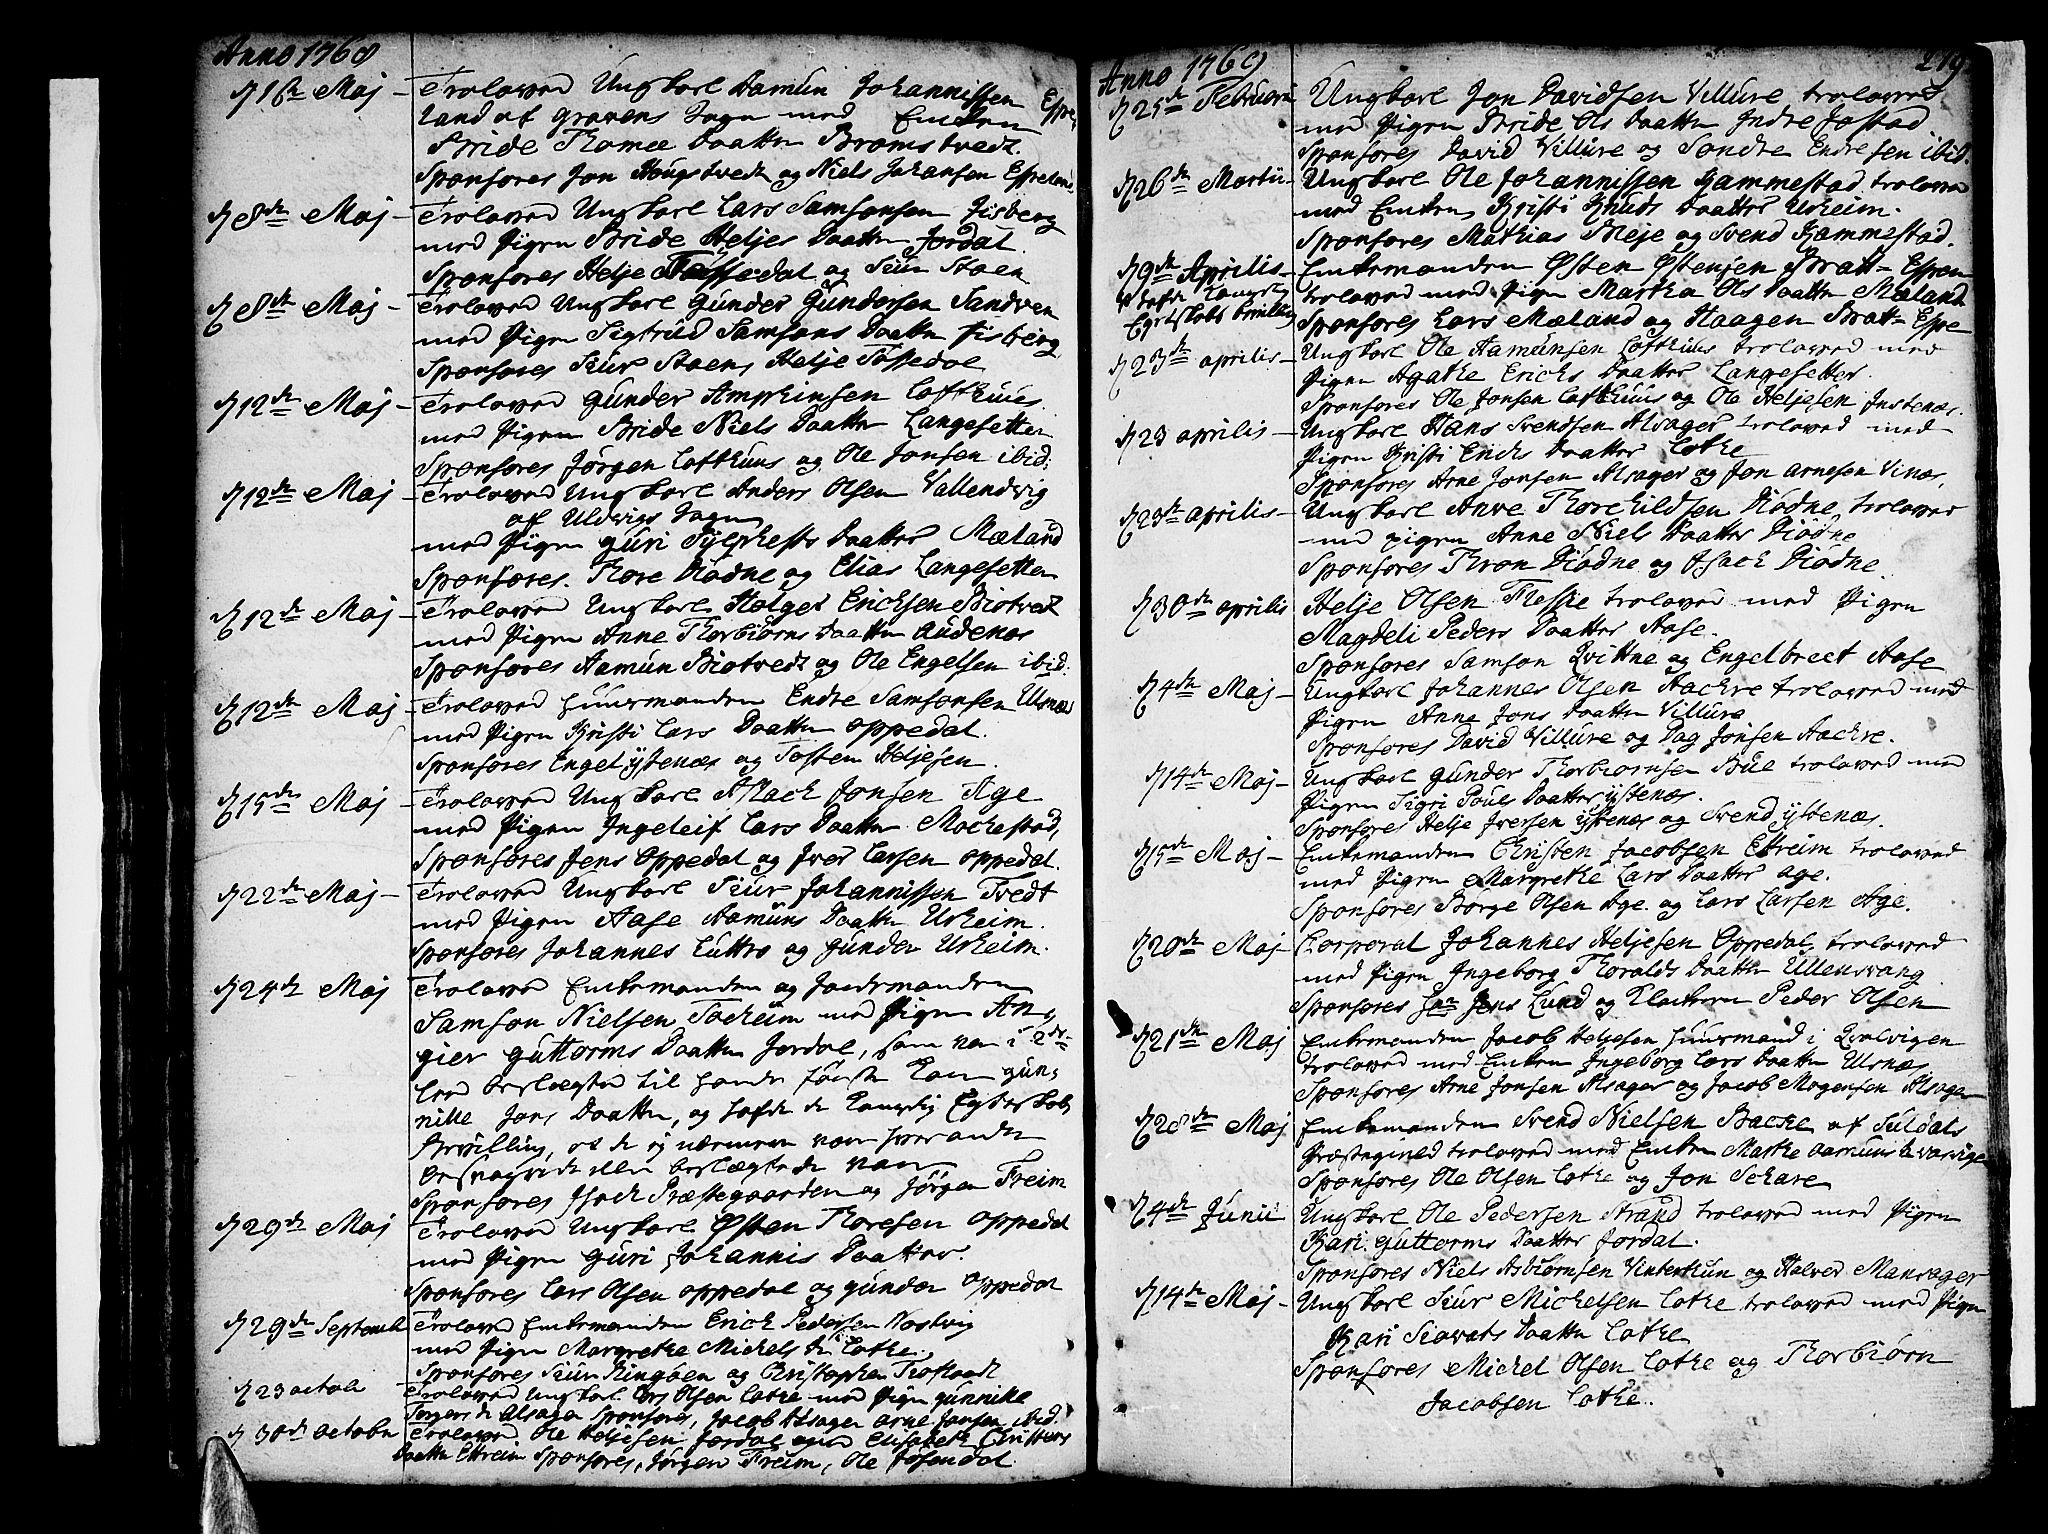 Anno 1768
d 16de Maj - Troloved Ungkarl Aamun Johannissen Espe
land af Gravens Sogn med Enken
Bride Thomæ Daatter Bramstvedt.
Sponsores Jon Haugstvedt og Niels Johansen Espeland
d 8de Maj - Troloved Ungkarl Lars Samsonsen Jisberg
med Pigen Bride Heljes Daatter Jordal
Sponsores Helje Tossedal og Siur Staen
d 8de Maj - Troloved Ungkarl Gunder Gundersen Sandven
med Pigen Sigtrud Samsons Daatter Jisberg
Sponsores Siur Staen, Helje Tossedal
d 12de Maj - Troloved Gunder Amphinsen Lofthuus
med Pigen Bride Niels Daatter Langesetter
Sponsores Jørgen Lofthuus og Ole Jonsen ibid:
d 12de Maj - Troloved Ungkarl Anders Olsen Vallendvig
af Uldvigs Sogn
med Pigen Guri Sylphests Daatter Mæland
Sponsores. Thore Diødne og Elias Langesetter
d 12de Maj - Troloved Ungkarl Holget Ericksen Biotvedt
med Pigen Anne Thorbiørns Daatter Audenæs
Sponsores Aamun Biotvedt og Ole Engelsen ibid.
d 12de Maj - Troloved Huusmanden Endre Samsonsen Ulsnæs
med Pigen Kristi Lars Daatter Oppedal.
Sponsores Engel Ystenæs og Tosten Heljesen.
d 15de Maj - Troloved Ungkarl Aslack Jonsen Age
med Pigen Ingeleif Lars Daatter Mockestad,
Sponsores Jens Oppedal og Iver Larsen Oppedal.
d 22de Maj - Troloved Ungkarl Siur Johannissen Tvedt
med Pigen Aase Aamuns Daatter Urheim.
Sponsores Johannes Luttro og Gunder Urheim.
d 24de Maj Troloved Enkemanden og Gaardmanden
Samson Nielsen Tocheim med Pigen An,
gier Guttorms Daatter Jordal, som var i 2det
Leed beslægtet til hands første Kone Gun,
nille Jons Daatter, og hafde de Kongelig Egteskabs
Bevilling, at de ej nærmere vare hverandre
besvogrede eller beslægtede vare
Sponsores Isack Præstegaarden og Jørgen Freim
d 29de Maj Troloved Ungkarl Østen Thoresen Oppedal
med Pigen Guri Johannis Daatter.
Sponsores Lars Olsen Oppedal og Gunder Oppedal
d 29de Septemb Troloved Enkemanden Erick Pedersen Nostvig
med Pigen Margrethe Michels D: Lothe.
Sponsores Siur Ringøen og Christopher Trostvedt
d 23 octob Troloved Ungkarl Lars Olsen Lothe med Pigen Gunnille
Torgers D. Alsager Sponsores, Jacob Alsager Arne Jonsen ibid.
d 30de octobr Troloved Ole Heljesen Jordal Pigen Elisabeth Christens
Daatter Eitreim Sponsores, Jørgen Freim, Ole Jøsendal.
Anno 1769
219
d 25de Februarii Ungkarl Jon Davidsen Villure troloved
med Pigen Bride Ols Daatter Indre Jaastad
Sponsores David Villure og Sondre Endresen ibid.
d 26de Martii - Ungkarl Ole Johannissen Hammestad troloved
med Enken Kristi Knuds Daatter Urheim.
Sponsores Mathias Bleje og Svend Hammestad.
d 9de Aprilis - Enkemanden Østen Østensen Bratt-Espen
troloved med Pigen Martha Ols Daatter Mæland
Sponsores Lars Mæland og Haagen Bratt-Espe
d 23de aprilis - Ungkarl Ole Aamunsen Lofthuus troloved med
Pigen Agathe Ericks Daatter Langesetter.
Sponsores Ole Jonsen Lofthuus og Ole Heljesen Instenæs.
d 23 aprilis - Ungkarl Hans Svendsen Alsager troloved med
Pigen Kristi Ericks Daatter Lothe
Sponsores Arne Jonsen Alsager og Jon Arnesen Vinæs,
d 23de aprilis - Ungkarl Anve Thorchildsen Diødne, troloved
med pigen Anne Niels Daatter Diødne
Sponsores Thron Diødne og Isack Diødne
d 30de aprilis Helje Olsen Fleske troloved med Pigen
Magdeli Peders Daatter Aase.
Sponsores Samson Qvittne og Engelbreet Aase
d 4de Maj - Ungkarl Johannes Olsen Aachre troloved med
Pigen Anne Jons Daatter Villure
Sponsores David Villure og Dag Jonsen Aachre.
d 14de Maj - Ungkarl Gunder Thorbiørnsen Bue troloved med
Pigen Sigri Pouls Daatter Ystenæs.
Sponsores Helje Iversen Ystenæs og Svend Ystenæs.
d 15de Maj - Enkemanden Christen Jacobsen Eitreim troloved
med Pigen Margrethe Lars Daatter Age.
Sponsores Børge Olsen Age. og Lars Larsen Age.
d 20de Maj Corporal Johannes Heljesen Oppedal, troloved
med Pigen Ingeborg Thoralds Daatter Ullensvang
Sponsores Hr Jens Lund og Klockeren Peder Olsen
d 21de Maj Enkemanden Jacob Heljesen Huusmand i Qvalvigen
troloved med Enken Ingeborg Lars Daatter Ulsnæs
Sponsores Arne Jonsen Alsager og Jacob Mogensen Alsager
d 28de Maj Enkemanden Svend Nielsen Backe af Suldals
Præstegield troloved med Enken Marthe Aamuns D.
Sponsores Ole Olsen Lothe og Jon Schare
d 4de Junii Ungkarl Ole Pedersen Strand troloved med Pigen
Kari Guttorms Daatter Jordal.
Sponsores Niels Asbiørnsen Vinterthun og Halver Mansager
d 14de Maj - Ungkarl Siur Michelsen Lothe troloved med Pigen
Kari Siovats Daatter Lothe
Sponsores Michel Olsen Lothe og Thorbiørn
Jacobsen Lothe.